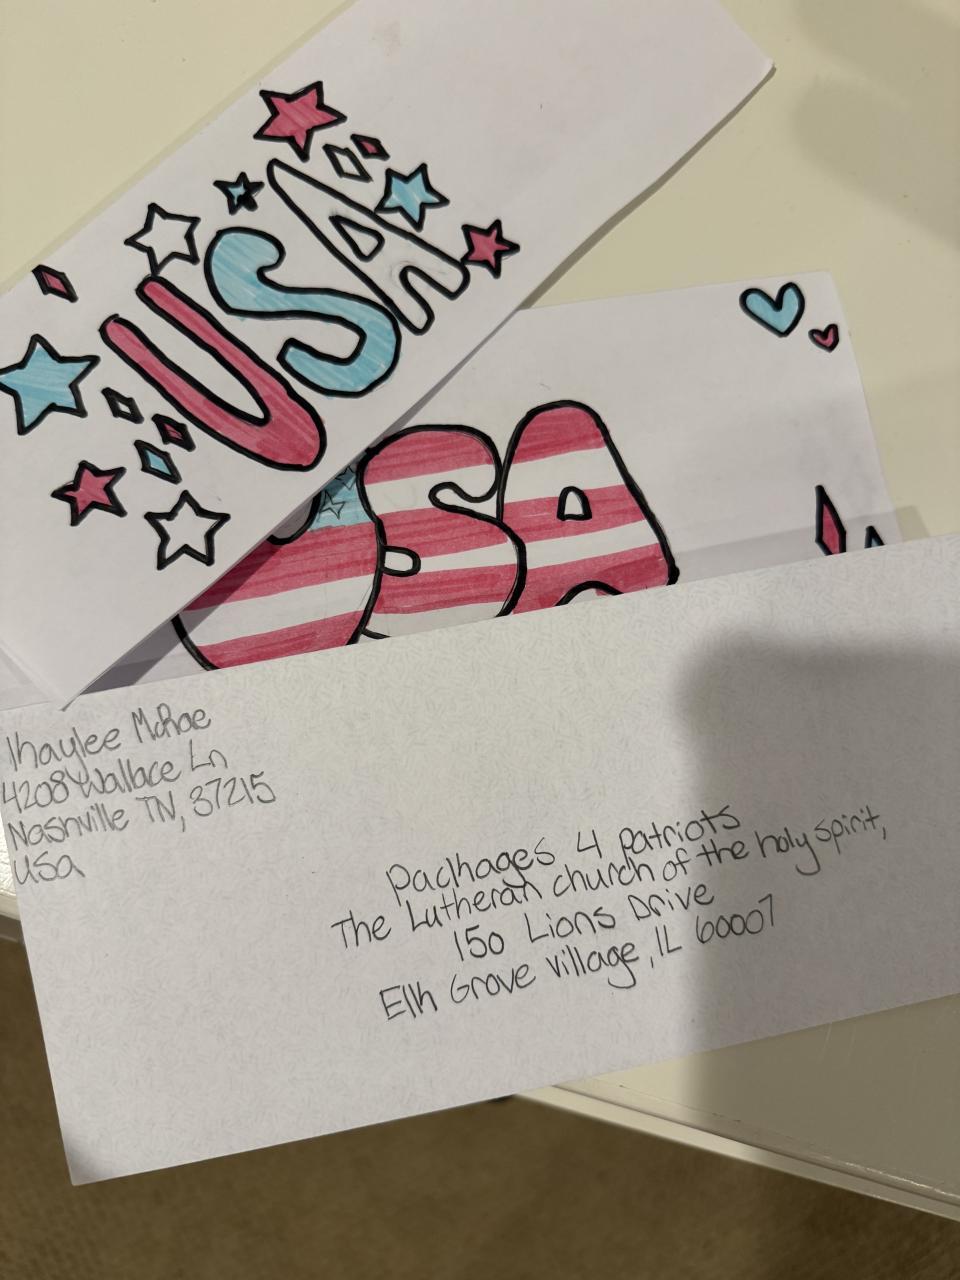 USA
USA
Khaylee McRae
4208 Wallace Ln
Nashville TN, 37215
USA
Packages 4 Patriots
The Lutheran church of the holy spirit,
150 Lions Drive
Elk Grove Village, IL 60007